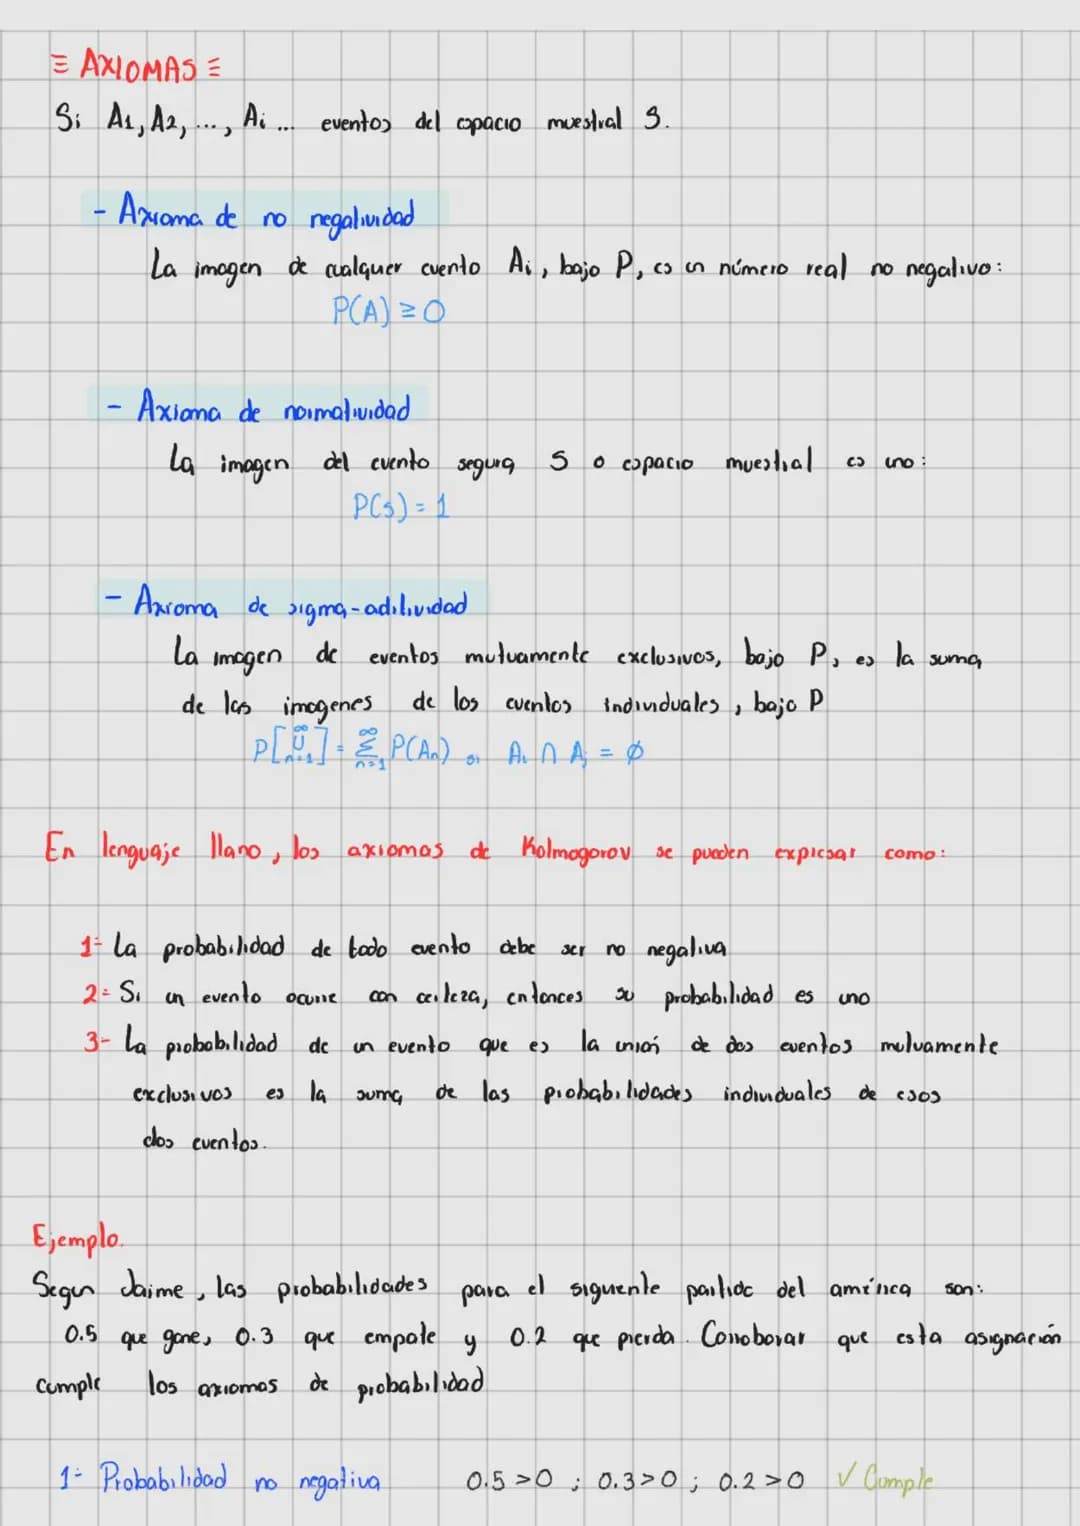 ≡ AXIOMAS ≡
Si A1, A2, ..., Ai ... eventos del espacio muestral S.
- Axioma de no negatividad
La imagen de cualquer evento Ai, bajo P, es un número real no negativo:
P(A) ≥ 0
- Axioma de normatividad
La imagen del evento segura S o espacio muestral es uno:
P(s) = 1
- Axioma de sigma-aditividad
La imagen de eventos mutuamente exclusivos, bajo P, es la suma
de las imagenes de los eventos individuales, bajo P
P[∞∪n=1] = ∞Σn=1 P(An) si Ai ∩ Aj = ∅
En lenguaje llano, los axiomas de Kolmogorov se pueden expresar como:
1- La probabilidad de todo evento debe ser no negativa
2- Si un evento ocurre con certeza, entonces su probabilidad es uno
3- La probabilidad de un evento que es la unión de dos eventos mutuamente
exclusivos es la suma de las probabilidades individuales de esos
dos eventos.
Ejemplo.
Segun Jaime, las probabilidades para el siguente partido del américa son:
0.5 que gane, 0.3 que empate y 0.2 que pierda. Corroborar que esta asignación
cumple los axiomas de probabilidad
1- Probabilidad no negativa 0.5 > 0 ; 0.3 > 0 ; 0.2 > 0 ✓ Cumple